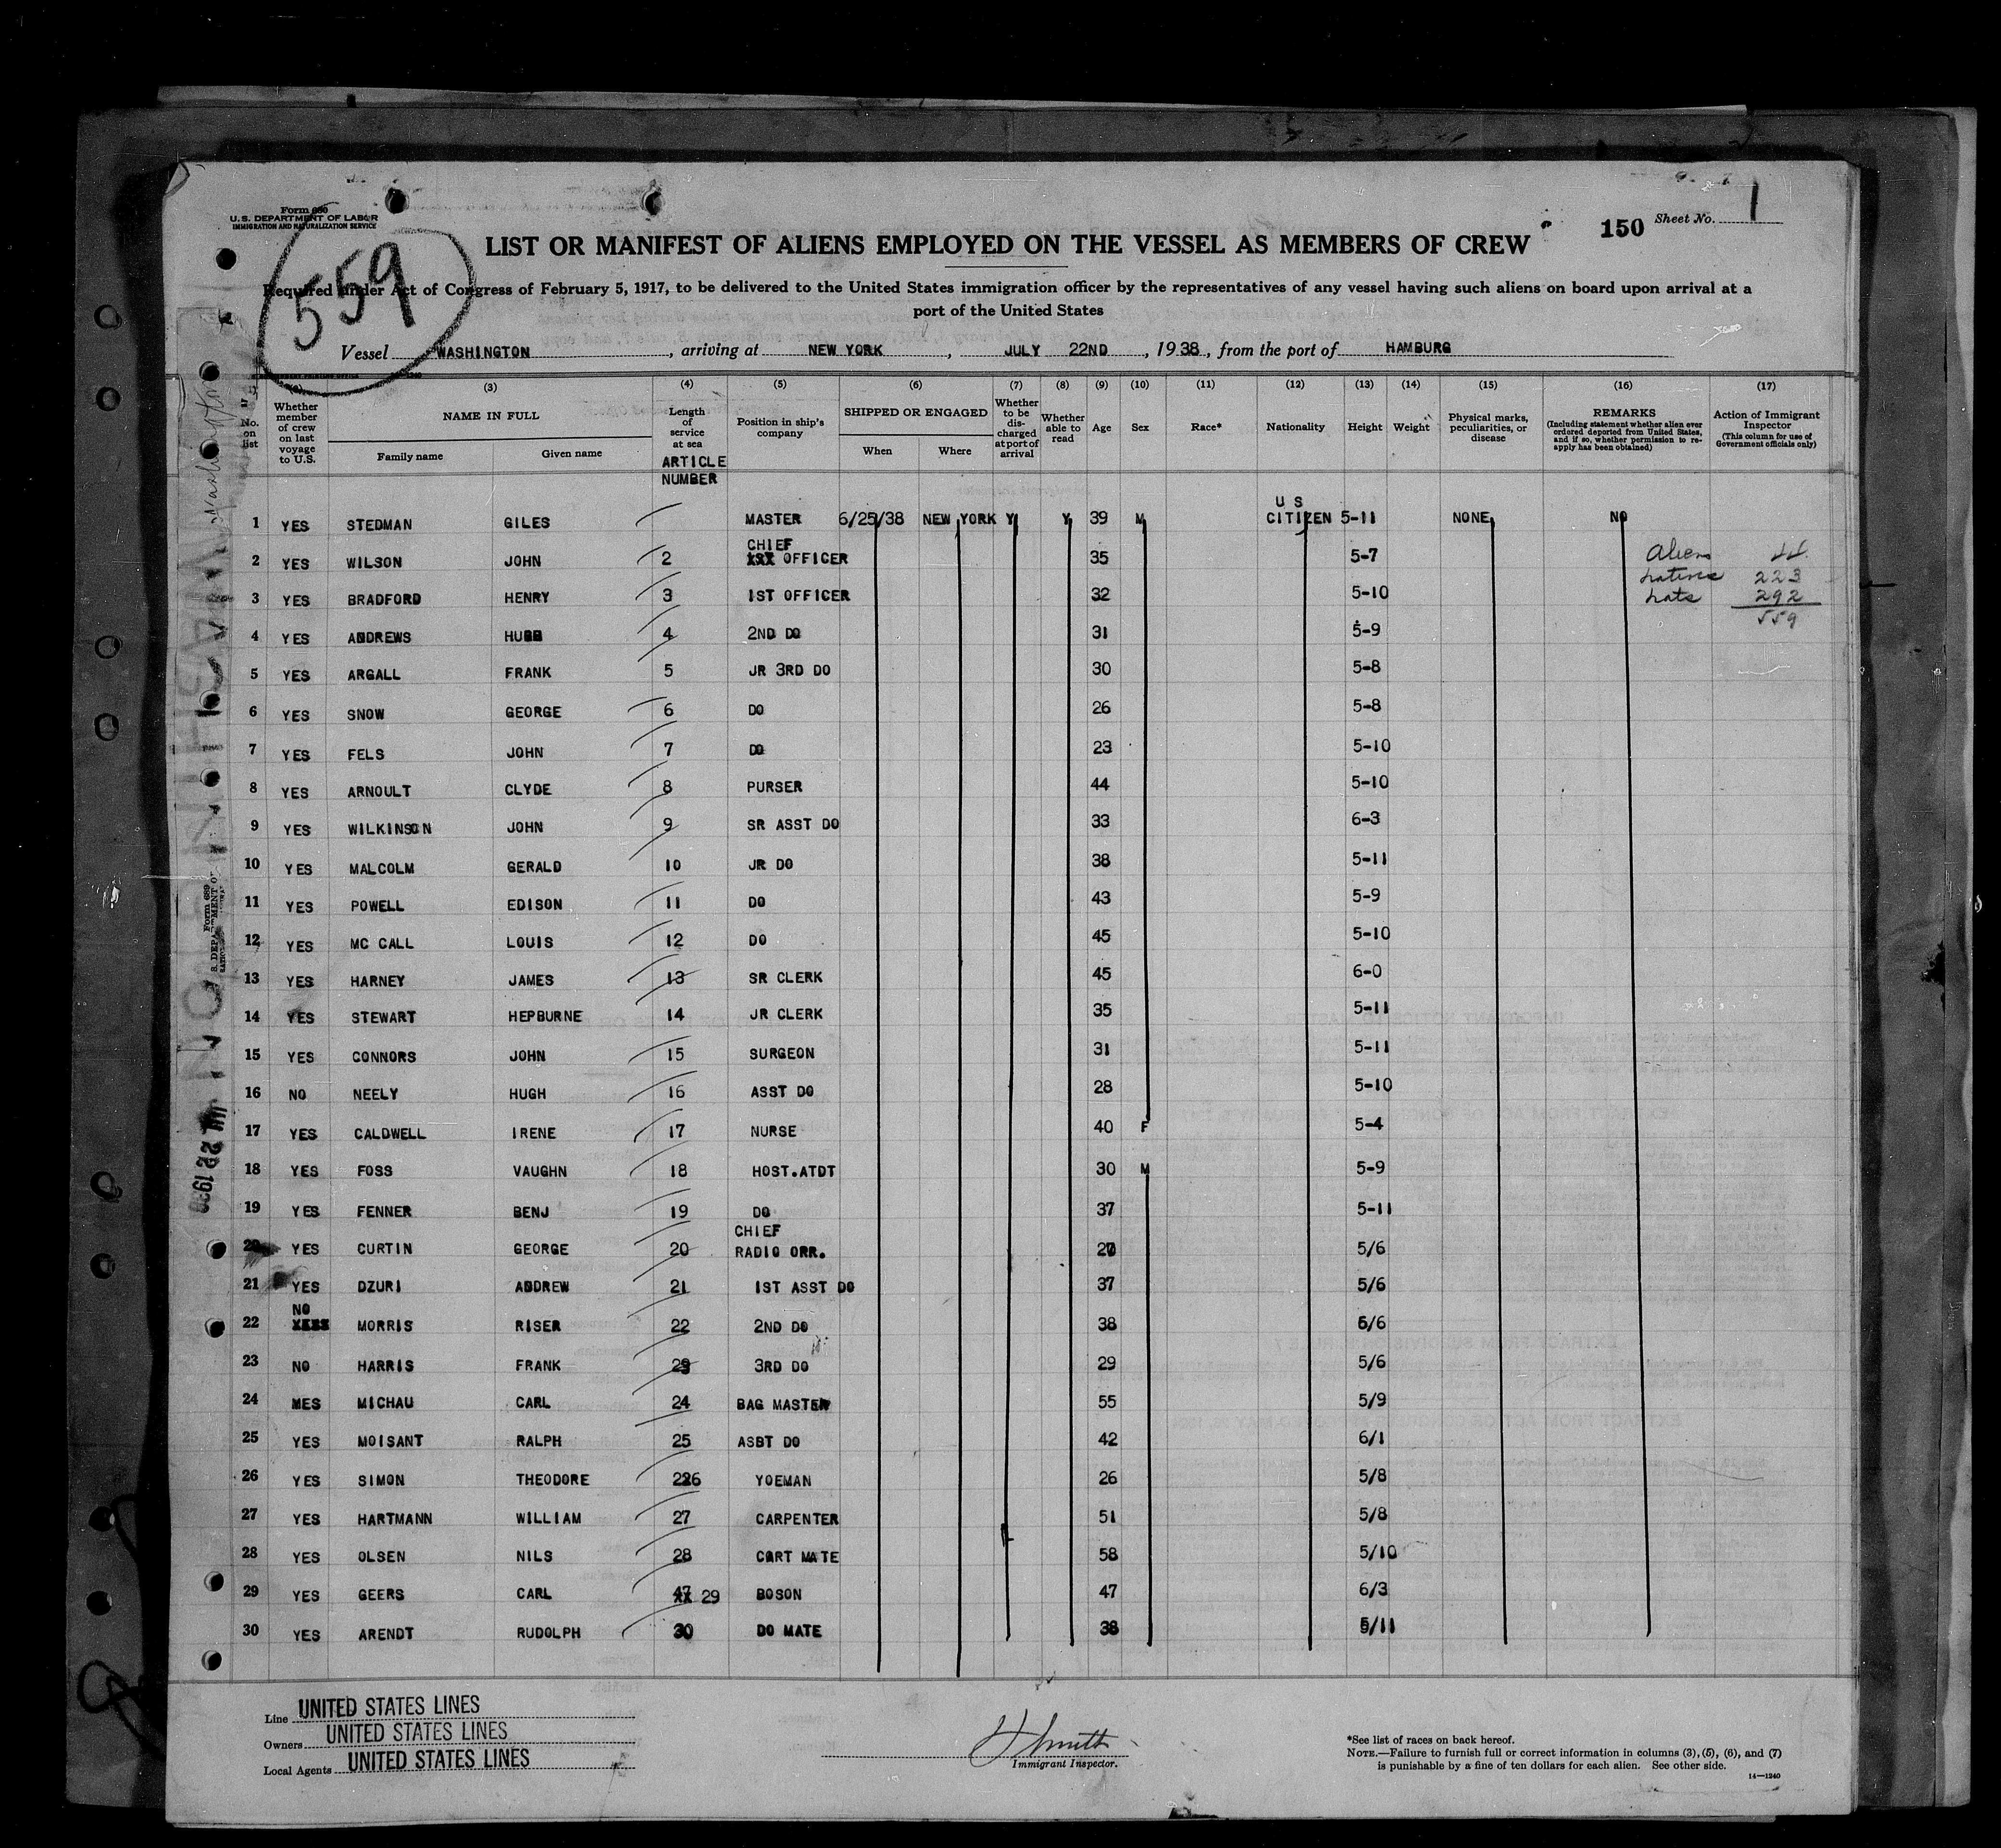 Form 680
U.S. DEPARTMENT OF LABOR
IMMIGRATION AND NATURALIZATION SERVICE
559
150 Sheet No. 1
LIST OR MANIFEST OF ALIENS EMPLOYED ON THE VESSEL AS MEMBERS OF CREW
Required under Act of Congress of February 5, 1917, to be delivered to the United States immigration officer by the representatives of any vessel having such aliens on board upon arrival at a
port of the United States
Vessel WASHINGTON, arriving at NEW YORK, JULY 22ND, 1938, from the port of HAMBURG
(3) (4) (5) (6) (7) (8) (9) (10) (11) (12) (13) (14) (15) (16) (17)
No. on list
Whether member of crew on last voyage to U.S.
NAME IN FULL
Family name Given name
Length of service at sea
ARTICLE NUMBER
Position in ship's company
SHIPPED OR ENGAGED
When Where
Whether to be discharged at port of arrival
Whether able to read
Age Sex Race* Nationality Height Weight
Physical marks, peculiarities, or disease
REMARKS
(Including statement whether alien ever ordered deported from United States, and if so, whether permission to reapply has been obtained)
Action of Immigrant Inspector
(This column for use of Government officials only)
1 YES STEDMAN GILES MASTER 6/25/38 NEW YORK Y Y 39 M U S CITIZEN 5-11 NONE NO
2 YES WILSON JOHN 2 CHIEF OFFICER 35 5-7
3 YES BRADFORD HENRY 3 1ST OFFICER 32 5-10
4 YES ANDREWS 4 2ND DO 31 5-9
5 YES ARGALL FRANK 5 JR 3RD DO 30 5-8
6 YES SNOW GEORGE 6 DO 26 5-8
7 YES FELS JOHN 7 DO 23 5-10
8 YES ARNOULT CLYDE 8 PURSER 44 5-10
9 YES WILKINSON JOHN 9 SR ASST DO 33 6-3
10 YES MALCOLM GERALD 10 JR DO 38 5-11
11 YES POWELL EDISON 11 DO 43 5-9
12 YES MC CALL LOUIS 12 DO 45 5-10
13 YES HARNEY JAMES 13 SR CLERK 45 6-0
14 YES STEWART HEPBURNE 14 JR CLERK 35 5-11
15 YES CONNORS JOHN 15 SURGEON 31 5-11
16 NO NEELY HUGH 16 ASST DO 28 5-10
17 YES CALDWELL IRENE 17 NURSE 40 F 5-4
18 YES FOSS VAUGHN 18 HOST.ATDT 30 M 5-9
19 YES FENNER BENJ 19 DO 37 5-11
20 YES CURTIN GEORGE 20 CHIEF RADIO ORR. 5/6
21 YES DZURI ANDREW 21 1ST ASST DO 37 5/6
22 NO MORRIS RISER 22 2ND DO 38 5/6
23 NO HARRIS FRANK 23 3RD DO 29 5/6
24 MES MICHAU CARL 24 BAG MASTER 55 5/9
25 YES MOISANT RALPH 25 ASBT DO 42 6/1
26 YES SIMON THEODORE 226 YOEMAN 26 5/8
27 YES HARTMANN WILLIAM 27 CARPENTER 51 5/8
28 YES OLSEN NILS 28 CART MATE 58 5/10
29 YES GEERS CARL 47 29 BOSON 47 6/3
30 YES ARENDT RUDOLPH 30 DO MATE 38 5/11
Aliens 44
natives 223
nats 292
559
Line UNITED STATES LINES
Owners UNITED STATES LINES
Local Agents UNITED STATES LINES
Smith
Immigrant Inspector.
*See list of races on back hereof.
NOTE.—Failure to furnish full or correct information in columns (3), (5), (6), and (7)
is punishable by a fine of ten dollars for each alien. See other side.
14—1240
Form 689